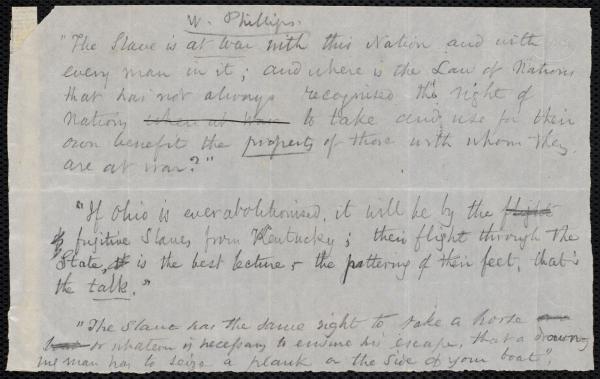 W. Phillips.
"The Slave is at war with this Nation and with
every man in it; and where is the Law of Nations
that has not always recognised the right of
Nations when at war to take and use for their
own benefit the property of those with whom they
are at war?"
"If Ohio is ever abolitionised, it will be by the flight
of fugitive Slaves from Kentucky; their flight through the
State, is the best lecture & the pattering of their feet, that's
the talk."
"The Slave has the same right to take a horse
boat or whatever is necessary to ensure his escape, that a drowning
man has to seize a plank or the side of your boat".